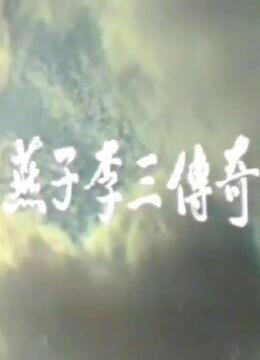 燕子李三傳奇